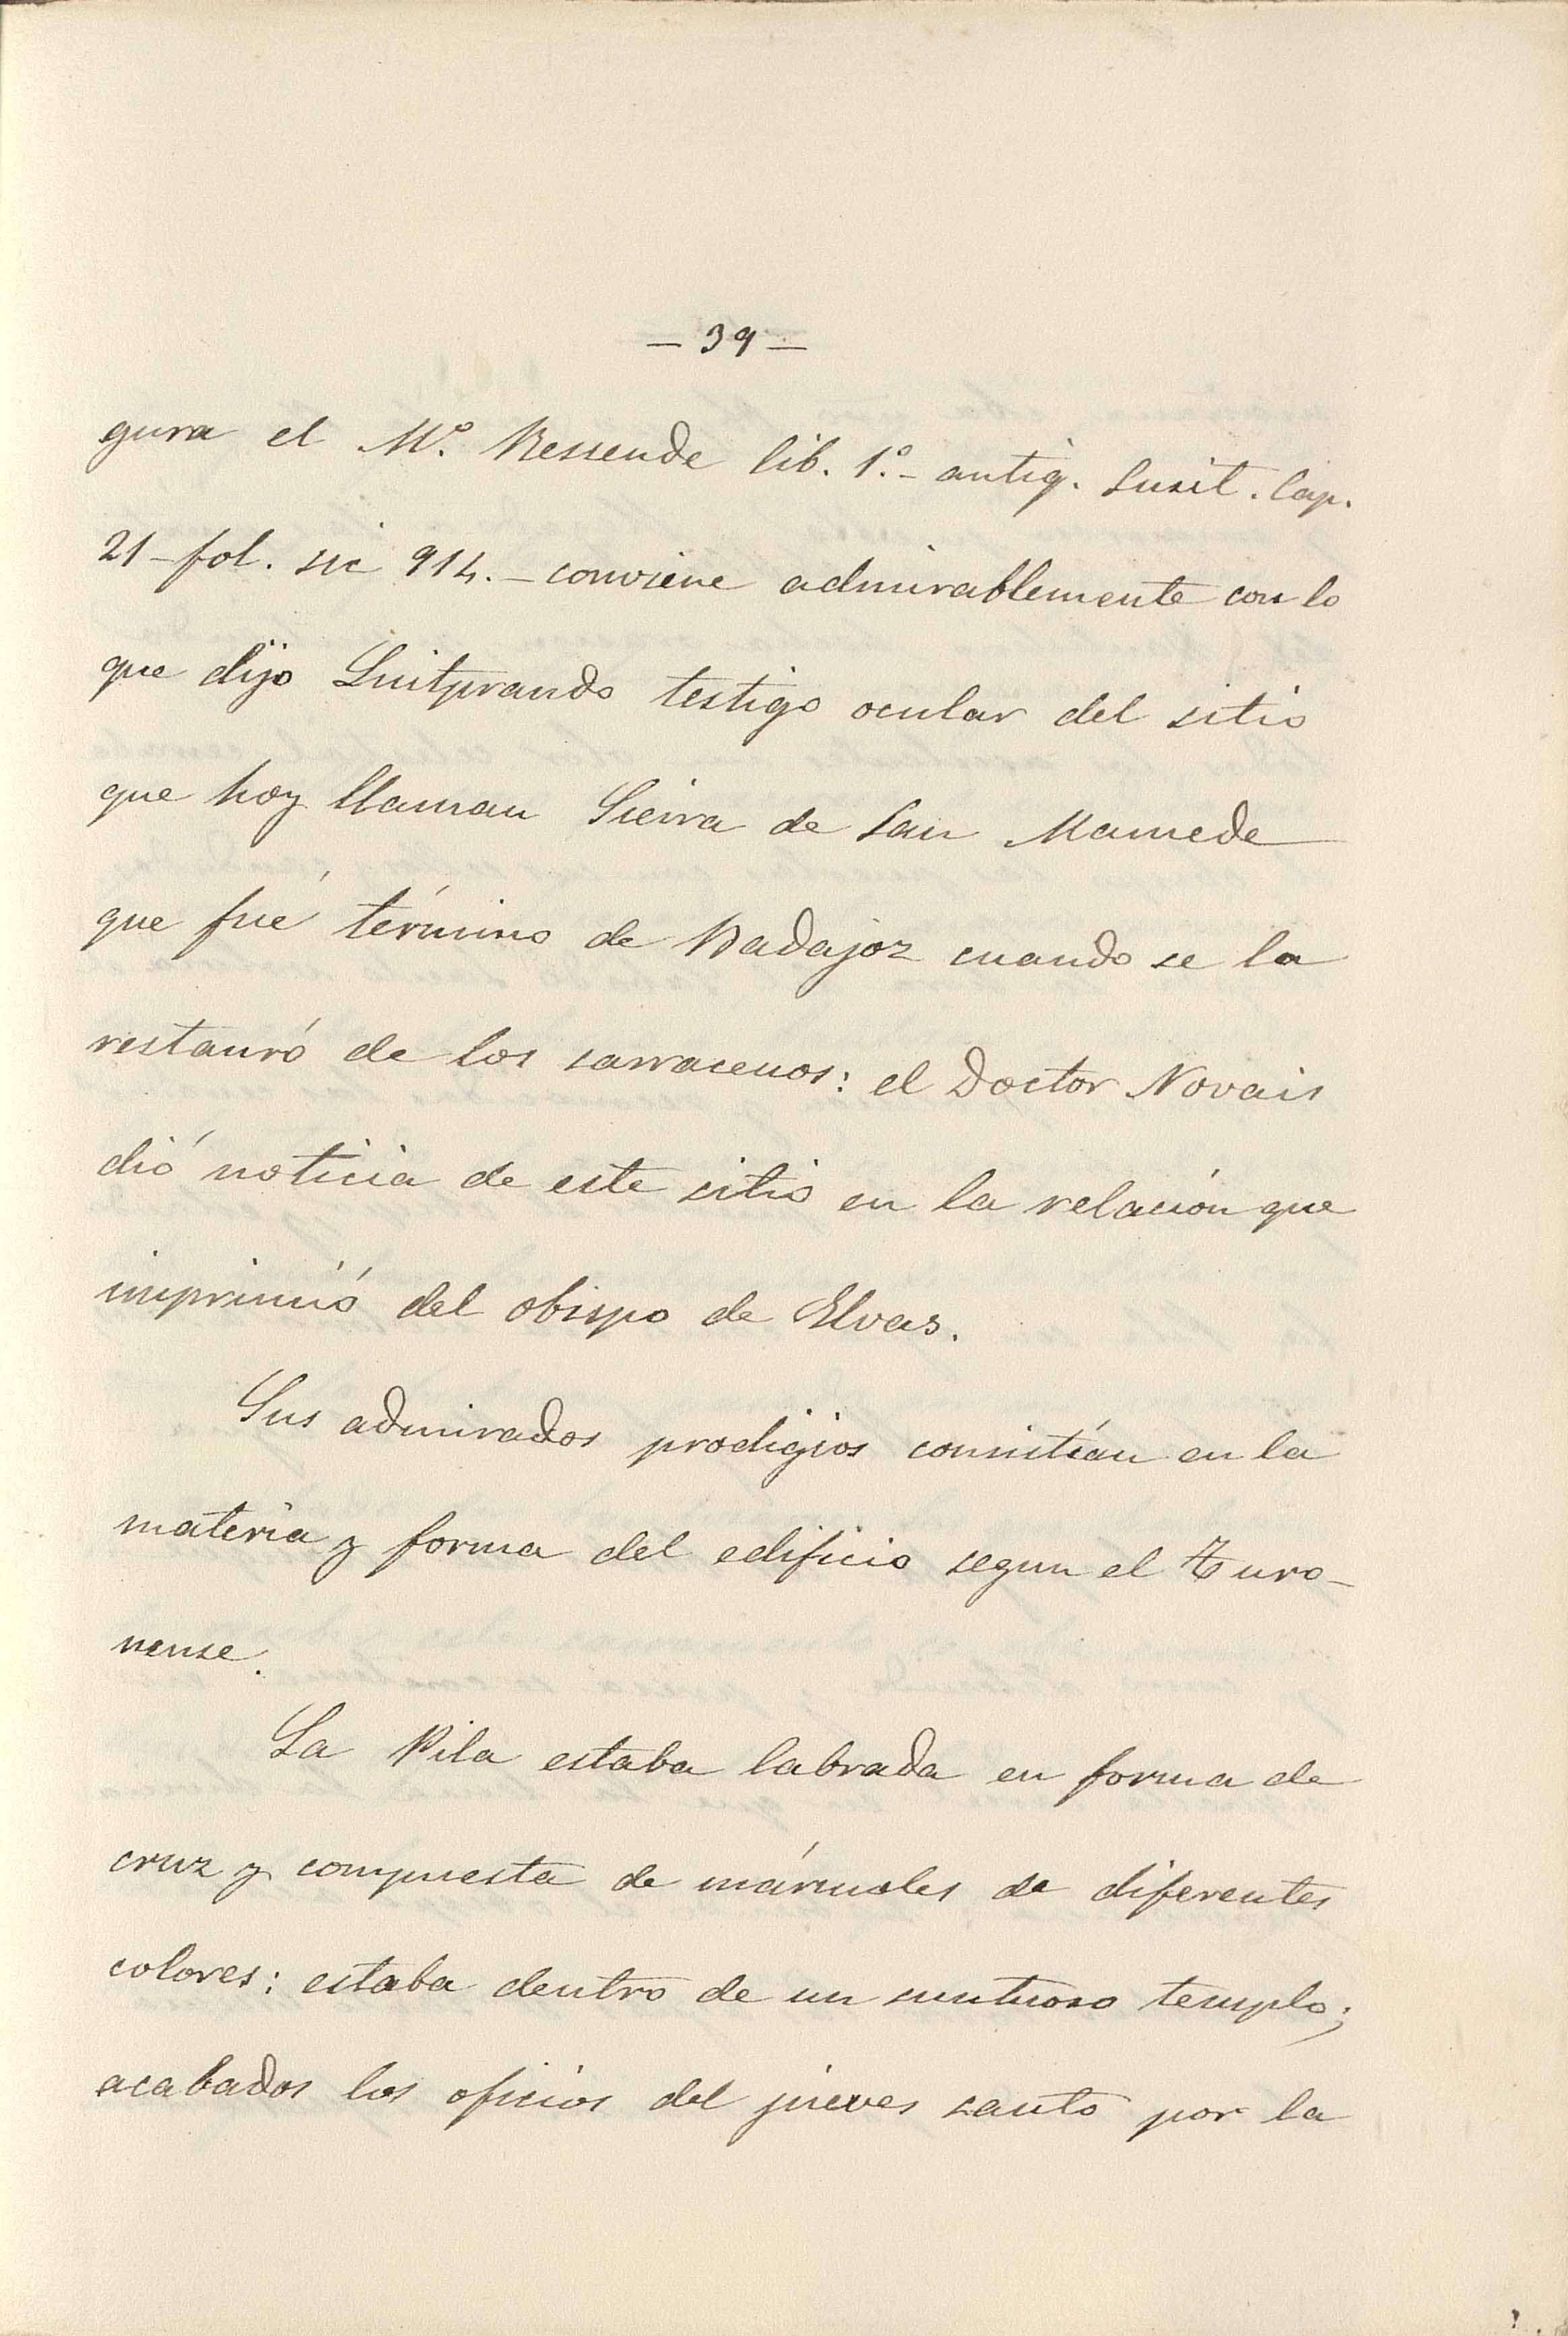 — 39 —
gura el M.º Ressende lib. 1.º - antiq. Lusit. Cap.
21 - fol. sic 914. - conviene admirablemente con lo
que dijo Luitprando testigo ocular del sitio
que hoy llaman Sierra de San Mamede
que fué término de Badajoz cuando se la
restauró de los sarracenos: el Doctor Novais
dió noticia de este sitio en la relación que
imprimió del obispo de Elvas.
Sus admirados prodigios consistían en la
materia y forma del edificio segun el Turo-
nense.
La Pila estaba labrada en forma de
cruz y compuesta de mármoles de diferentes
colores: estaba dentro de un suntuoso templo;
acabados los oficios del jueves santo por la